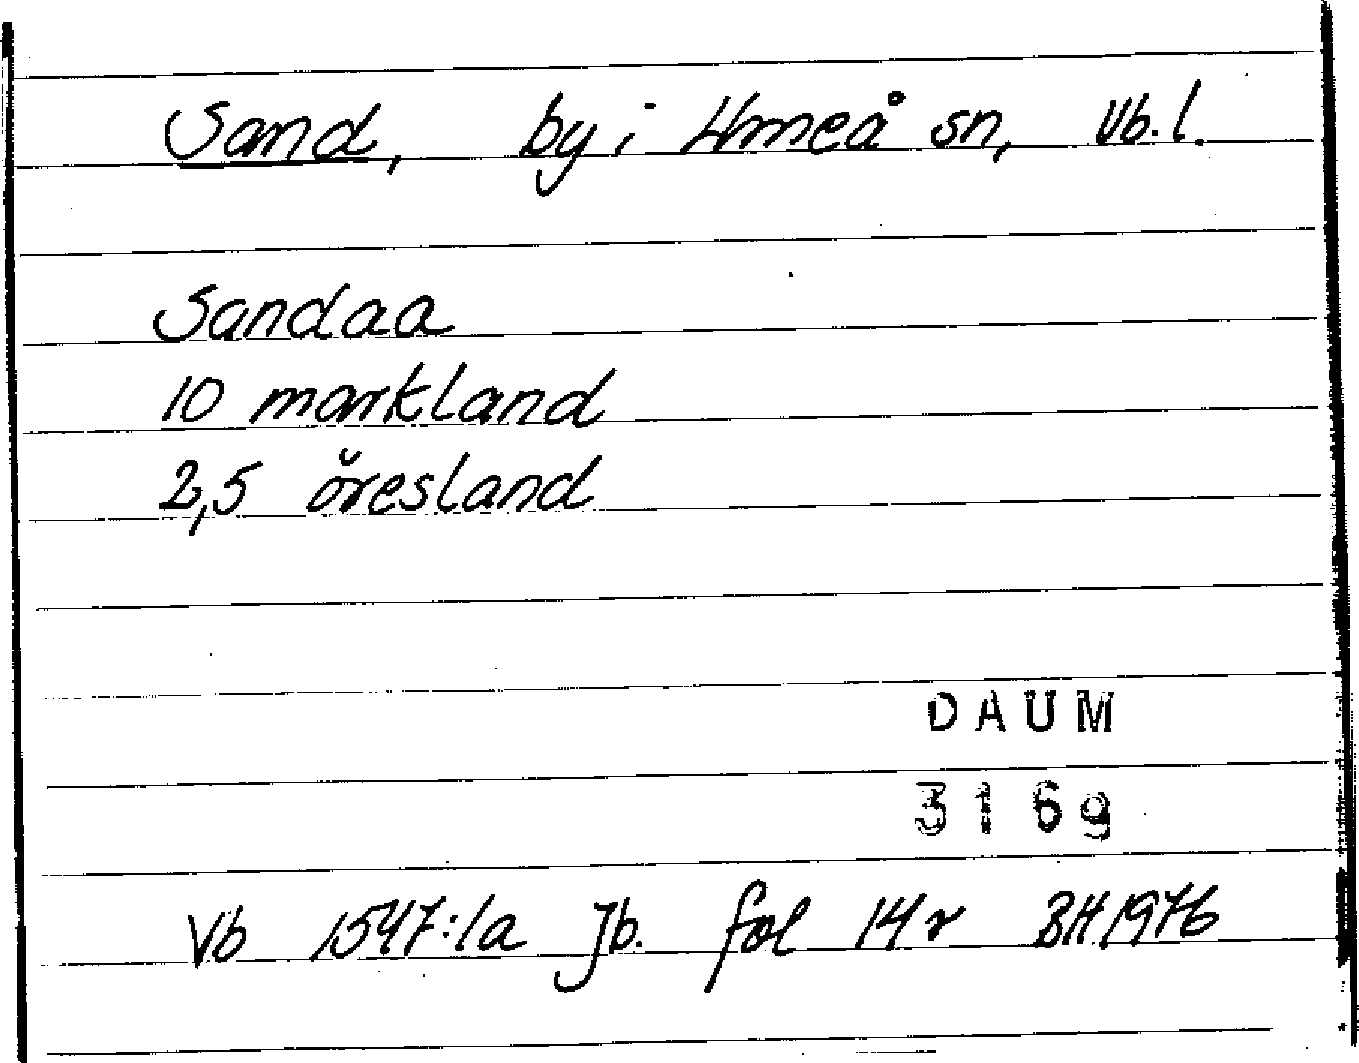 Sand, by i Umeå sn, Vb.l.
Sandaa
10 markland
2,5 öresland
DAUM
3169
Vb 1547:1a Jb. fol 14r BH 1976